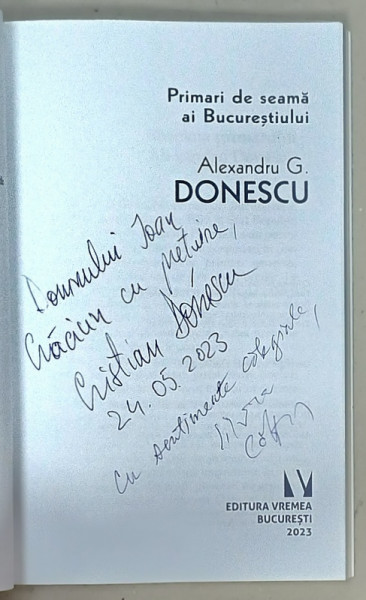 Primari de seamă
ai Bucureștiului
Alexandru G.
DONESCU
Domnului Ioan
Crăciun cu prețuire,
Cristian Donescu
24.05.2023
Cu sentimente colegiale,
Silvia
EDITURA VREMEA
BUCUREȘTI
2023